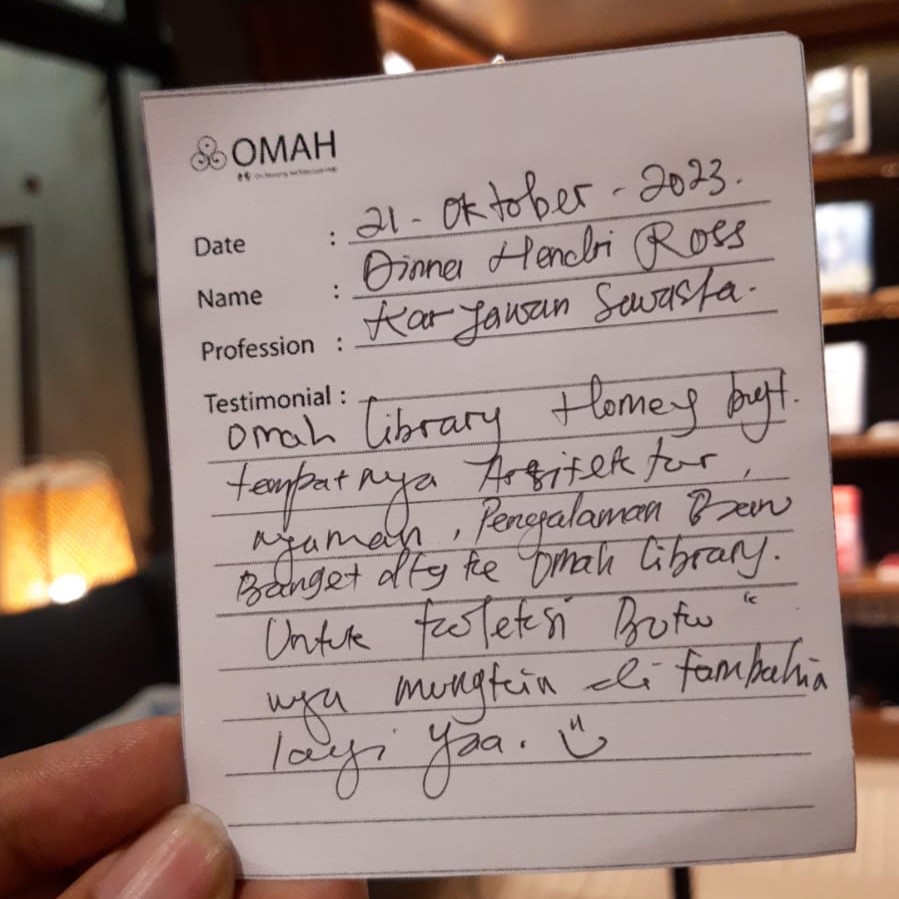 OMAH
Date : 21 - Oktober - 2023.
Name : Dinna Hendri Ross
Profession : Karyawan Swasta.
Testimonial :
Omah Library Homey bgt.
tempatnya Arsitektur,
nyaman, Pengalaman Baru
Banget dtg ke Omah Library.
Untuk koleksi Buku "
nya mungkin di tambahin
lagi Yaa.